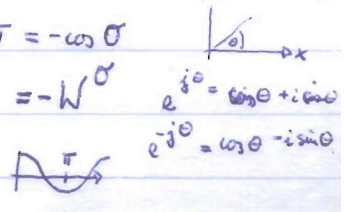 π = -cos σ
= -W^σ
θ
x
e^{jθ} = cosθ + i sinθ
e^{-jθ} = cosθ - i sinθ
π